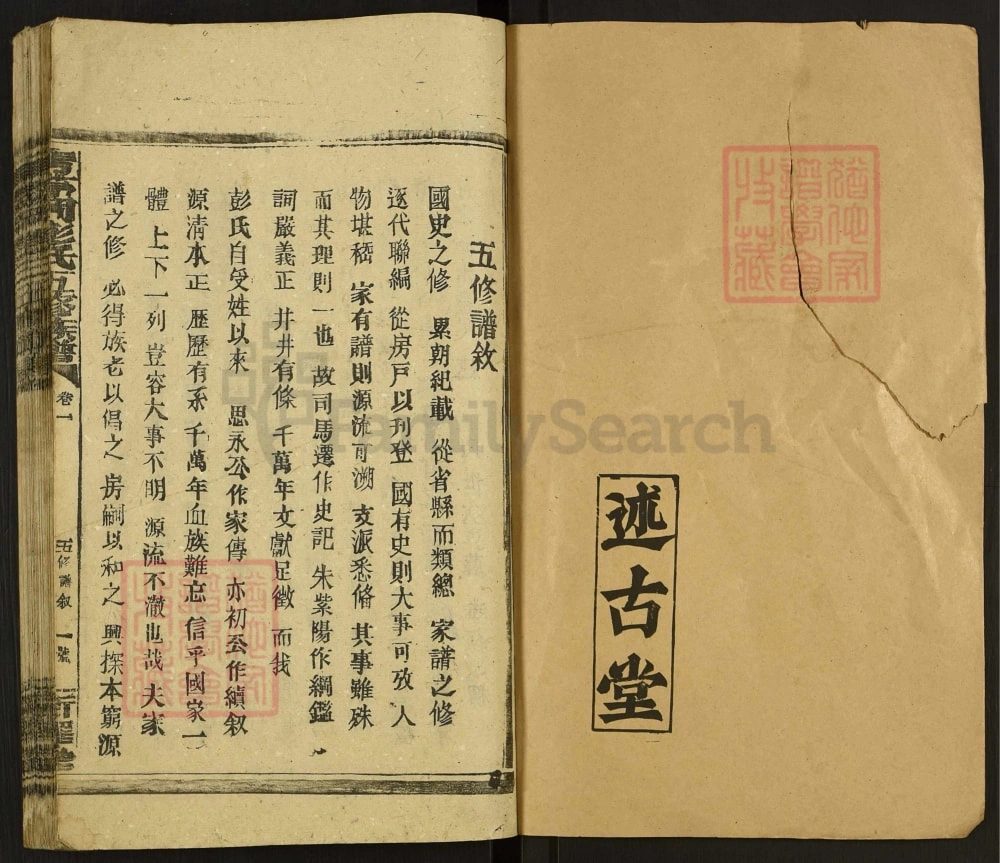 述古堂
五修譜敘
國史之修 累朝紀載 從省縣而類總 家譜之修
逐代聯編 從房戶以刊登 國有史則大事可攷 人
物堪嵇 家有譜則源流可溯 支派悉俻 其事雖殊
而其理則一也 故司馬遷作史記 朱紫陽作綱鑑
詞嚴義正 井井有條 千萬年文獻足徵 而我
彭氏自受姓以來 思永公作家傳 亦初公作續叙
源清本正 歷歷有系 千萬年血族難忘 信乎國家一
體 上下一列 豈容大事不明 源流不澈也哉 夫家
譜之修 必得族老以倡之 房嗣以和之 興探本窮源
彭氏五修族譜
卷一
五修譜叙
一號
FamilySearch